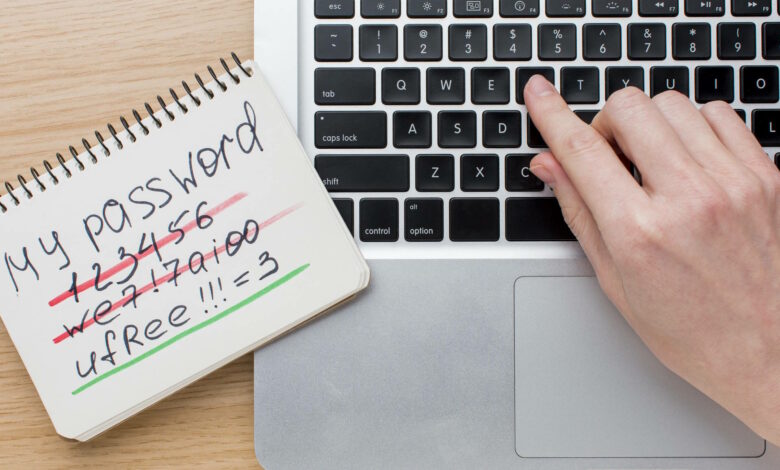 My password
123456
we7!7aioo
ufRee!!!=3
esc F1 F2 F3 F4 F5 F6 F7 F8
~ ! 1 @ 2 # 3 $ 4 % 5 ^ 6 & 7 * 8 ( 9
tab Q W E T Y U I O P
caps lock A S D
shift Z X C
control alt option